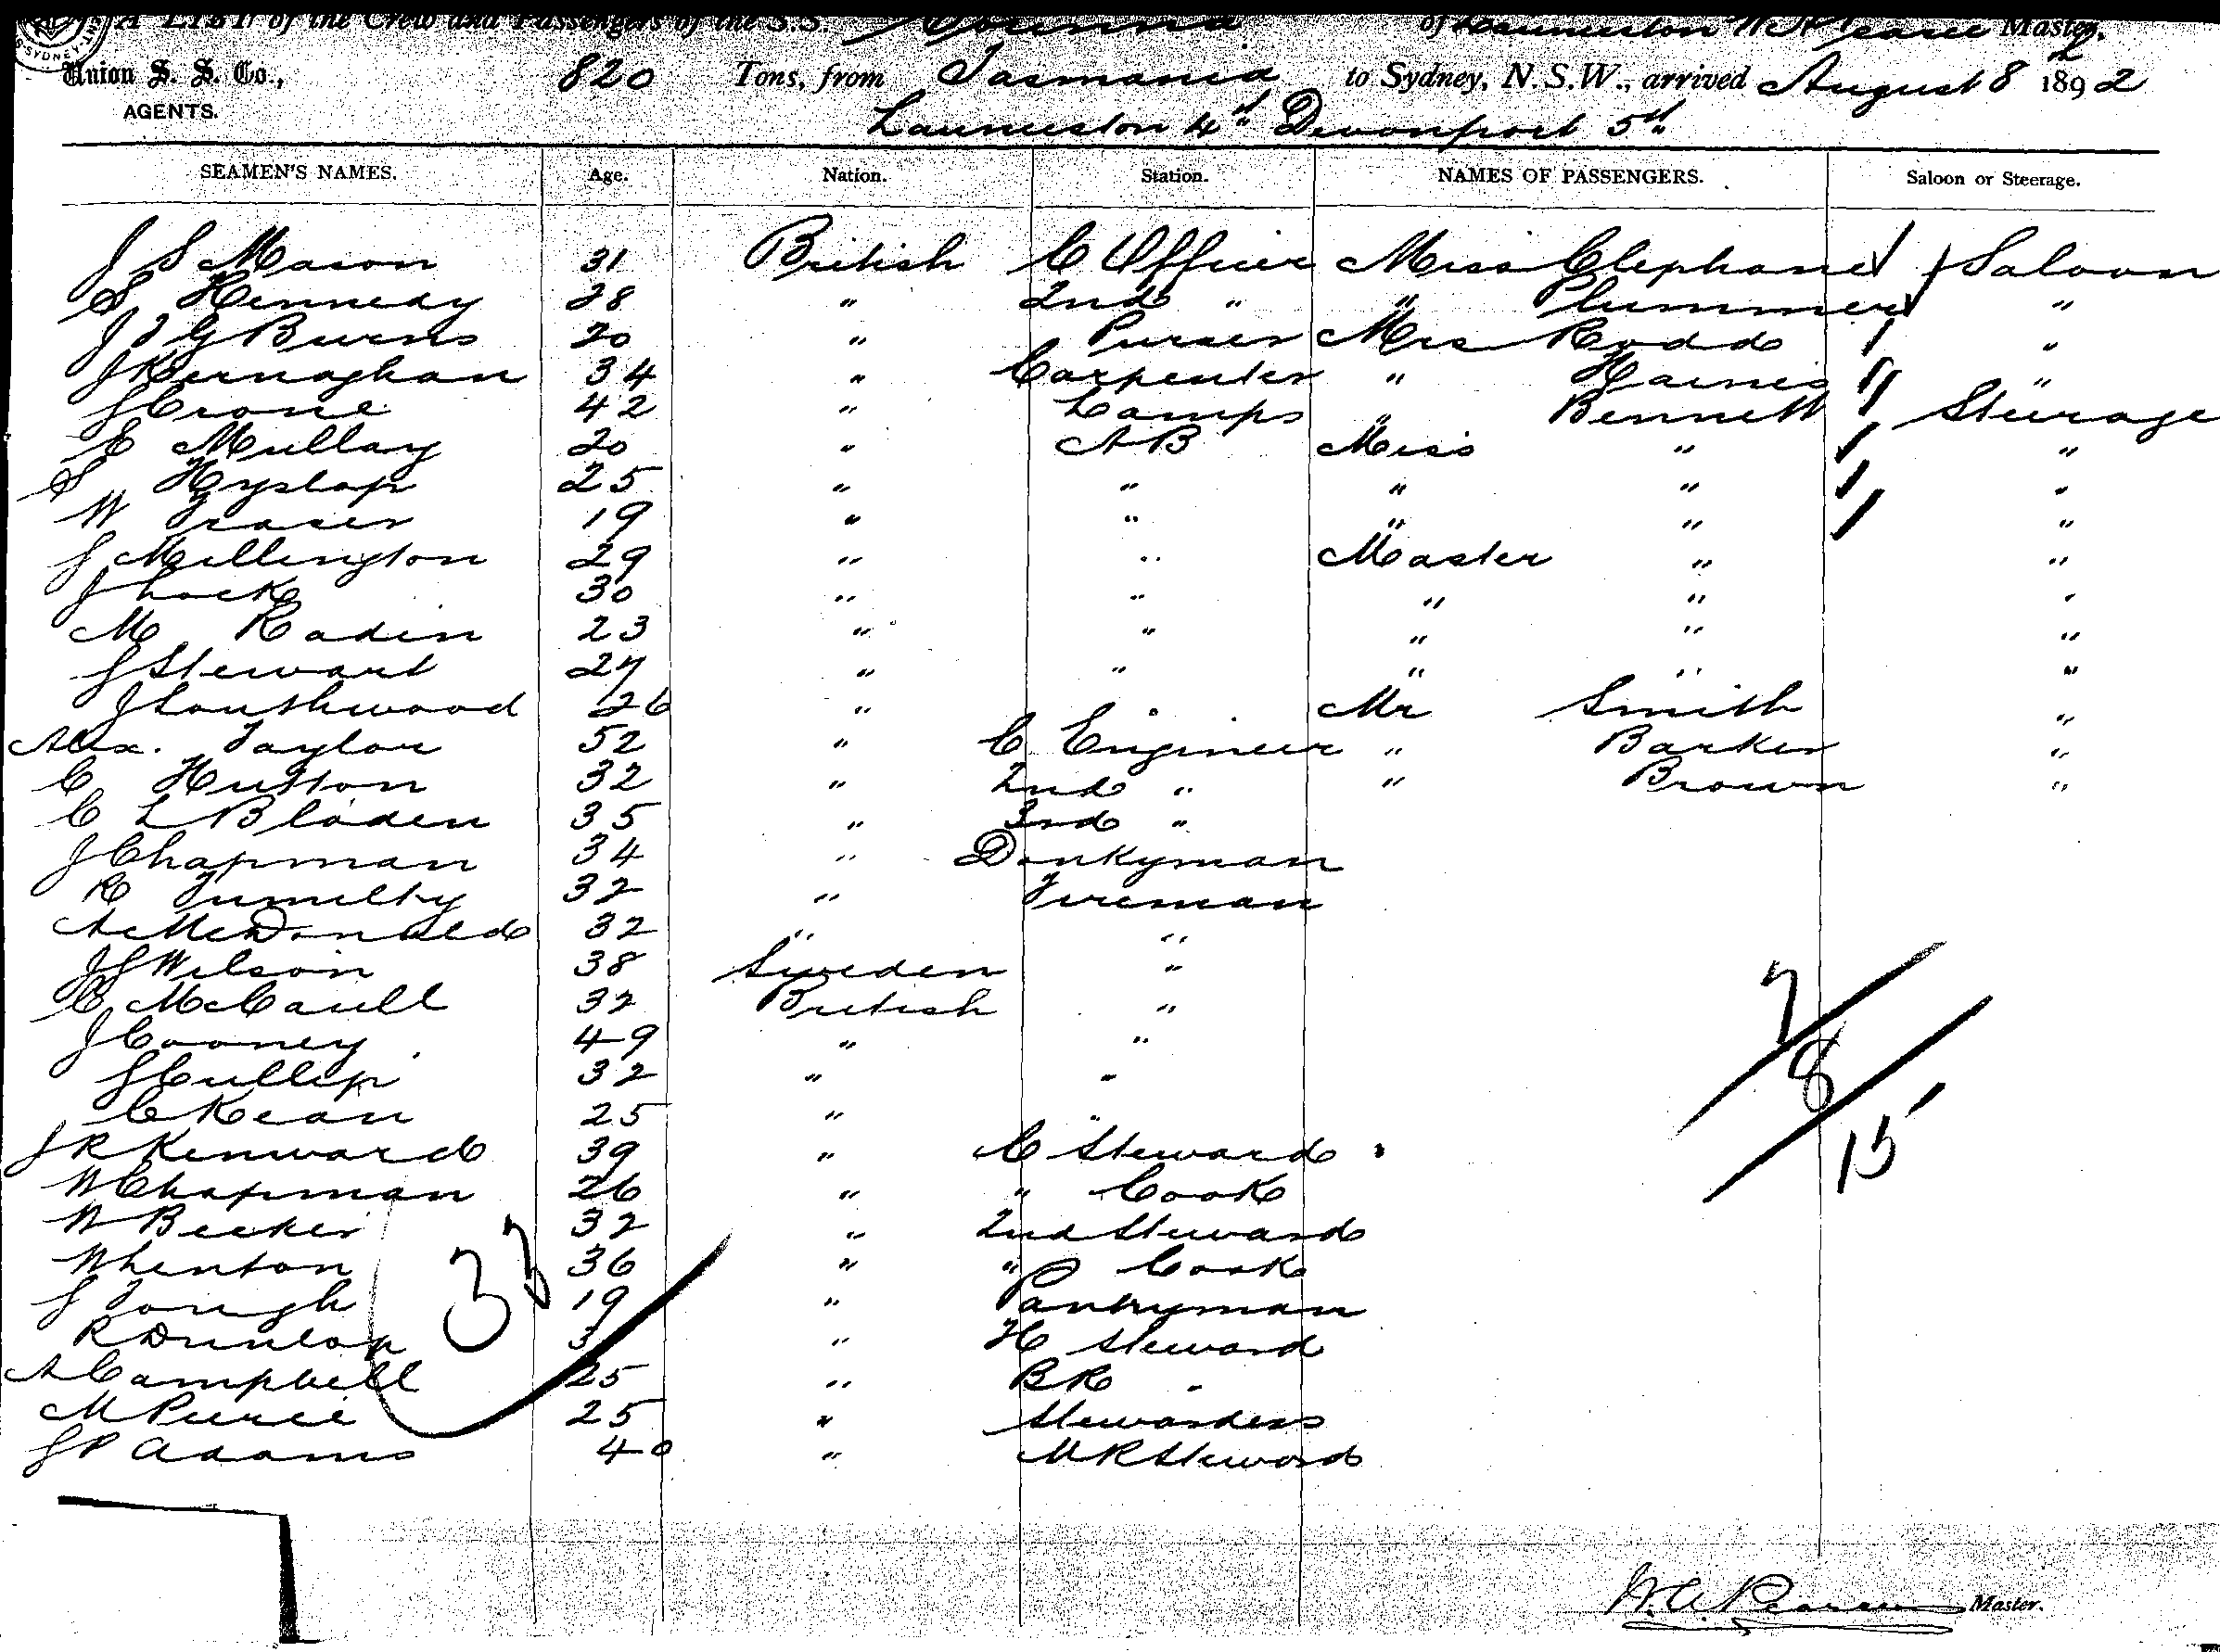 A LIST of the Crew and Passengers of the S.S. of Launceston W A Pearce Master.
Union S. S. Co., 820 Tons, from Tasmania to Sydney, N.S.W., arrived August 8 1892
AGENTS. Launceston 4th Devonport 5th
SEAMEN'S NAMES. Age. Nation. Station. NAMES OF PASSENGERS. Saloon or Steerage.
J S Mason 31 British C Officer Miss Clephane Saloon
S Kennedy 28 " 2nd " " Plummer "
J J G Burns 20 " Purser Mrs Rodd "
J Kernaghan 34 " Carpenter " Haines "
J Crone 42 " Lamps " Bennett Steerage
E Mullay 20 " AB Miss " "
S Hyslop 25 " " " " "
W Fraser 19 " " " " "
J Millington 29 " " Master " "
J Lock 30 " " " " "
M Radin 23 " " " " "
J Stewart 27 " " " " "
J Southwood 26 " " Mr Smith "
Alex. Taylor 52 " C Engineer " Barker "
C Hutton 32 " 2nd " " Brown "
C L Bladen 35 " 3rd "
J Chapman 34 " Donkyman
R Tumilty 32 " Fireman
A McDonald 32 " "
J G Wilson 38 Sweden "
C McCaull 32 British "
J Cooney 49 " "
J Cullip 32 " "
C Kean 25 " "
J R Kenward 39 " C Steward
W Chapman 26 " " Cook
W Becker 32 " 2nd Steward
W Lenton 36 " " Cook
J Tough 19 " Pantryman
R Dunlop 3 " H Steward
A Campbell 25 " BR "
M Pierce 25 " Stewardess
J P Adams 40 " M R Steward
7
8
15
33
W. A. Pearce Master.